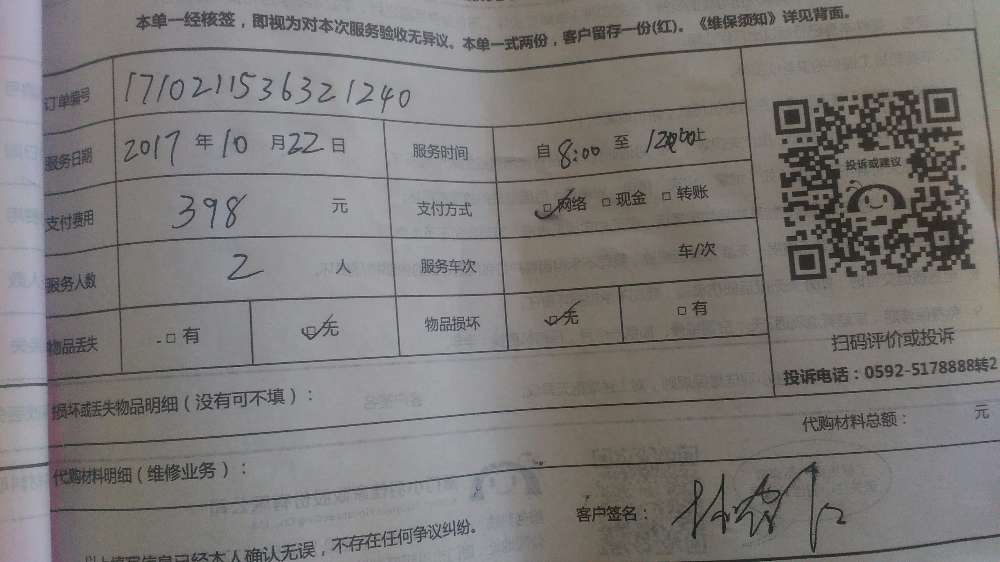 本单一经核签，即视为对本次服务验收无异议。本单一式两份，客户留存一份(红)。《维保须知》详见背面。
订单编号 171021153632 1240
服务日期 2017 年 10 月 22 日 服务时间 自 8:00 至 止
支付费用 398 元 支付方式 ☑网络 □现金 □转账
服务人数 2 人 服务车次 车/次
物品丢失 □有 ☑无 物品损坏 ☑无 □有
投诉或建议
扫码评价或投诉
投诉电话：0592-5178888转2
损坏或丢失物品明细（没有可不填）：
代购材料总额： 元
代购材料明细（维修业务）：
客户签名：
已经本人确认无误，不存在任何争议纠纷。